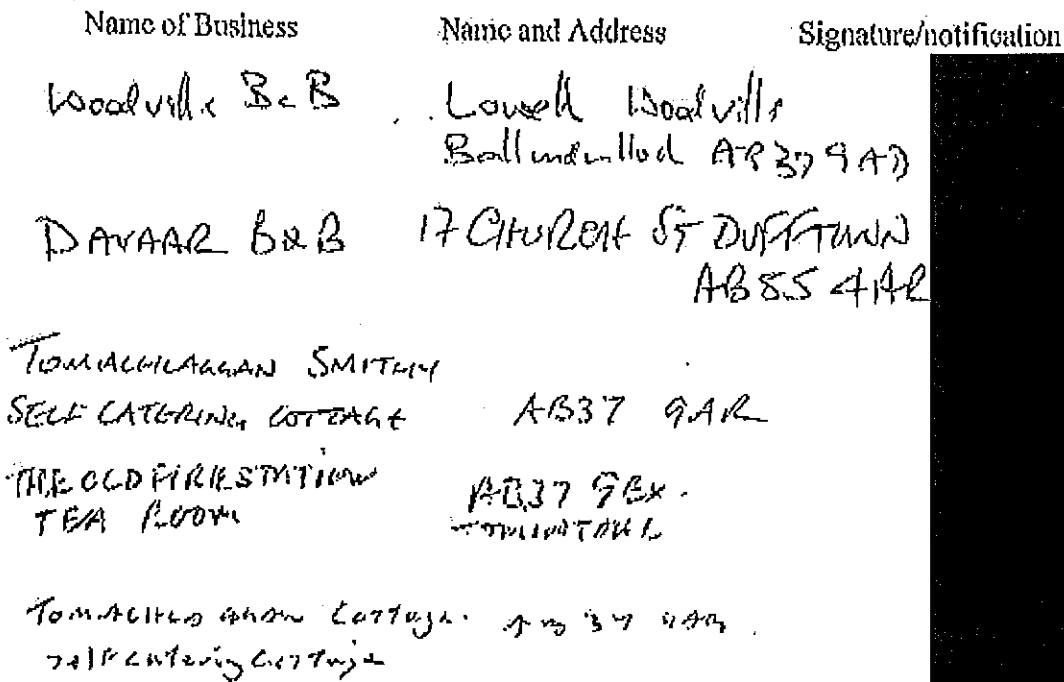 Name of Business Name and Address Signature/notification
Woodville B&B Lowell Woodville
Ballindalloch AB37 9AD
DAVAAR B&B 17 CHURCH ST DUFFTOWN
AB55 4AR
TOMACHLAGGAN SMITHY
SELF CATERING COTTAGE AB37 9AR
THE OLD FIRE STATION AB37 9BX.
TEA ROOM TOMINTOUL
Cottage. AB37
self catering Cottage